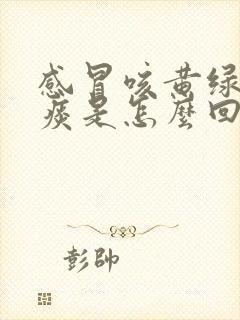 感冒咳黄绿
痰是怎麼回
彭帥